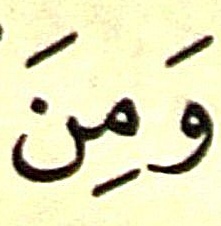 وَمِنَ